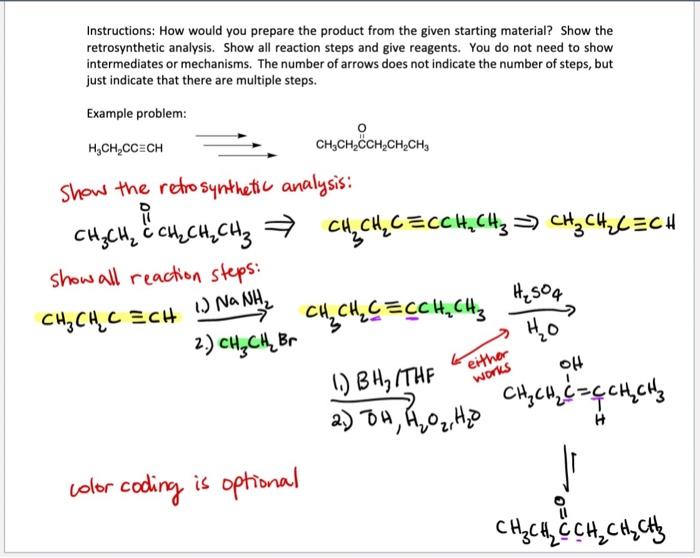 Instructions: How would you prepare the product from the given starting material? Show the
retrosynthetic analysis. Show all reaction steps and give reagents. You do not need to show
intermediates or mechanisms. The number of arrows does not indicate the number of steps, but
just indicate that there are multiple steps.
Example problem:
O
H₃CH₂CC≡CH
CH₃CH₂CCH₂CH₂CH₃
Show the retrosynthetic analysis:
O
CH₃CH₂CCH₂CH₂CH₃ ⇒ CH₃CH₂C≡CCH₂CH₃ ⇒ CH₃CH₂C≡CH
Show all reaction steps:
CH₃CH₂C≡CH
1.) NaNH₂
2.) CH₃CH₂Br
CH₃CH₂C≡CCH₂CH₃
H₂SO₄
H₂O
either
works
1.) BH₃/THF
2.) ⁻OH, H₂O₂, H₂O
OH
CH₃CH₂C=CCH₂CH₃
H
color coding is optional
O
CH₃CH₂CCH₂CH₂CH₃